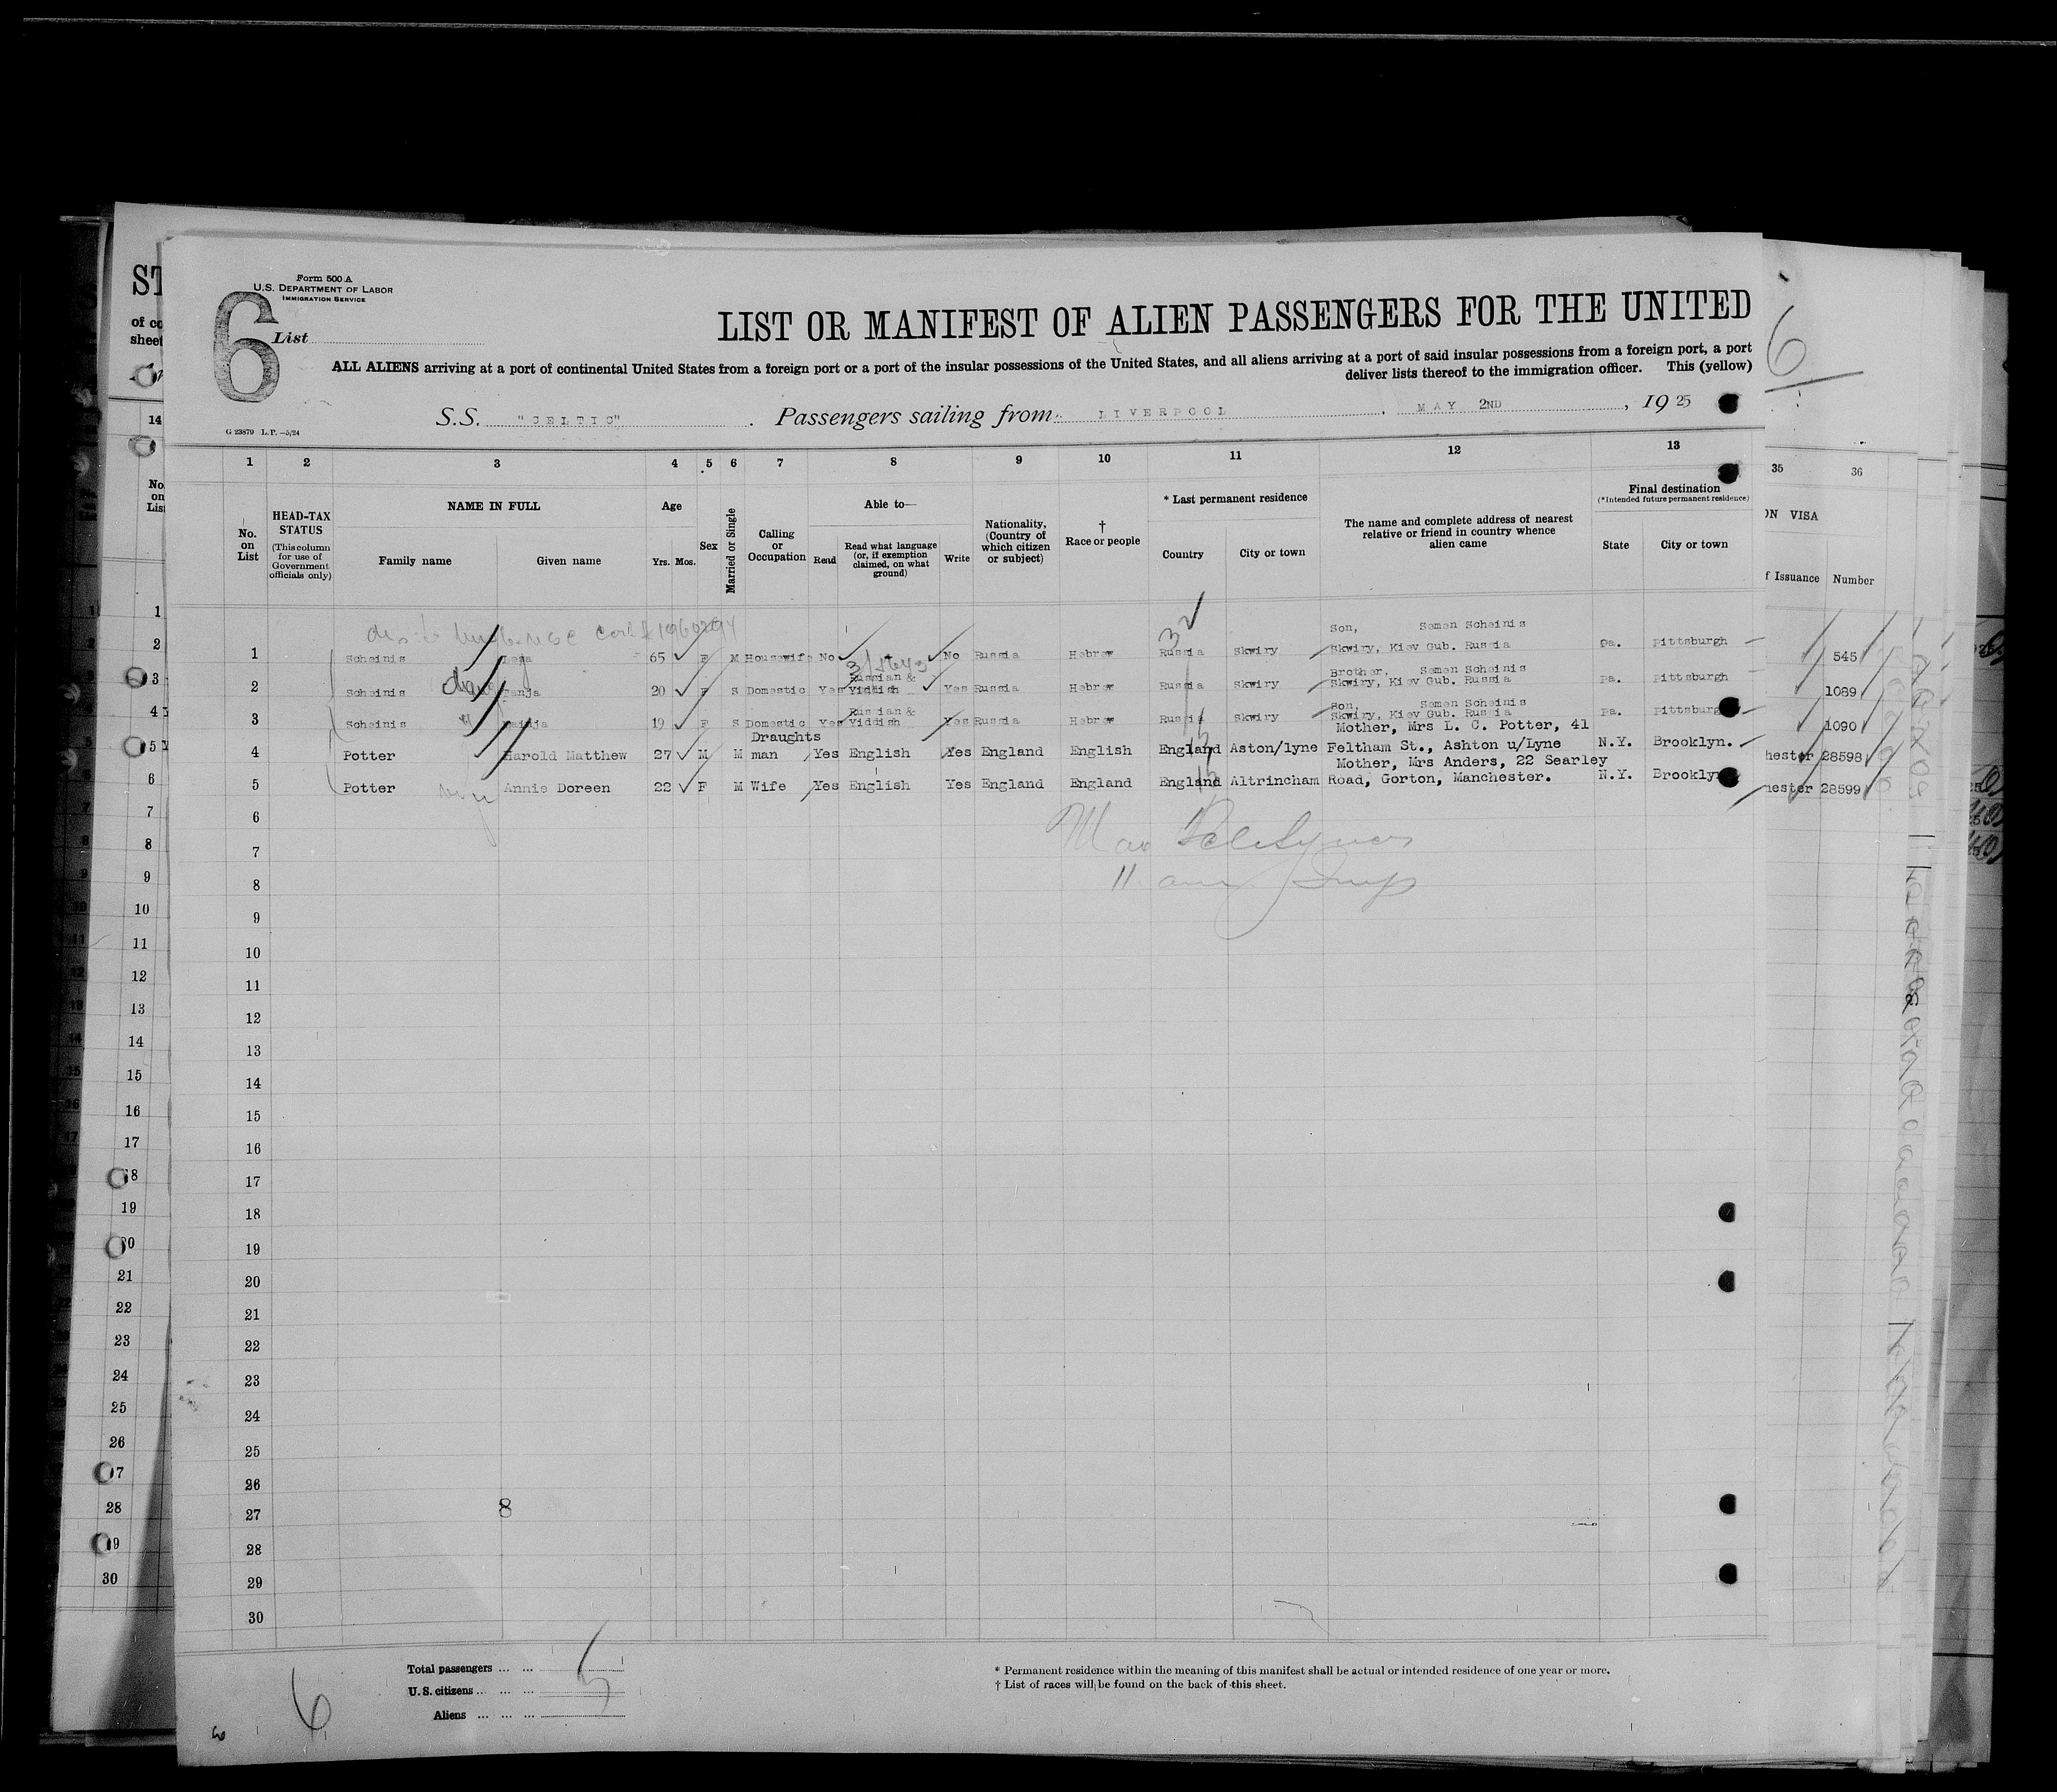 Form 500 A
U.S. DEPARTMENT OF LABOR
IMMIGRATION SERVICE
6 List
LIST OR MANIFEST OF ALIEN PASSENGERS FOR THE UNITED
ALL ALIENS arriving at a port of continental United States from a foreign port or a port of the insular possessions of the United States, and all aliens arriving at a port of said insular possessions from a foreign port, a port
deliver lists thereof to the immigration officer. This (yellow)
S.S. "CELTIC". Passengers sailing from LIVERPOOL, MAY 2ND, 1925
G 23879 L.P.—5/24
1 2 3 4 5 6 7 8 9 10 11 12 13 35 36
No. on List
HEAD-TAX STATUS (This column for use of Government officials only)
NAME IN FULL
Family name Given name
Age
Yrs. Mos.
Sex
Married or Single
Calling or Occupation
Able to—
Read Read what language (or, if exemption claimed, on what ground) Write
Nationality, (Country of which citizen or subject)
† Race or people
* Last permanent residence
Country City or town
The name and complete address of nearest relative or friend in country whence alien came
Final destination
(*Intended future permanent residence)
State City or town
ON VISA
f Issuance Number
1 Scheinis 65 F M Housewife No No Russia Hebrew Russia Skwiry Son, Semen Scheinis Skwiry, Kiev Gub. Russia Pa. Pittsburgh 545
2 Scheinis 20 F S Domestic Yes Russian & Yiddish Yes Russia Hebrew Russia Skwiry Brother, Semen Scheinis Skwiry, Kiev Gub. Russia Pa. Pittsburgh 1089
3 Scheinis 19 F S Domestic Yes Russian & Yiddish Yes Russia Hebrew Russia Skwiry Son, Semen Scheinis Skwiry, Kiev Gub. Russia Pa. Pittsburg 1090
4 Potter Harold Matthew 27 M M Draughts man Yes English Yes England English England Aston/lyne Mother, Mrs L. C. Potter, 41 Feltham St., Ashton u/Lyne N.Y. Brooklyn. hester 28598
5 Potter Annie Doreen 22 F M Wife Yes English Yes England England England Altrincham Mother, Mrs Anders, 22 Searley Road, Gorton, Manchester. N.Y. Brooklyn hester 28599
6
7
8
9
10
11
12
13
14
15
16
17
18
19
20
21
22
23
24
25
26
27 8
28
29
30
Total passengers ... ...
U.S. citizens ... ... ...
Aliens ... ... ...
5
6
* Permanent residence within the meaning of this manifest shall be actual or intended residence of one year or more.
† List of races will be found on the back of this sheet.